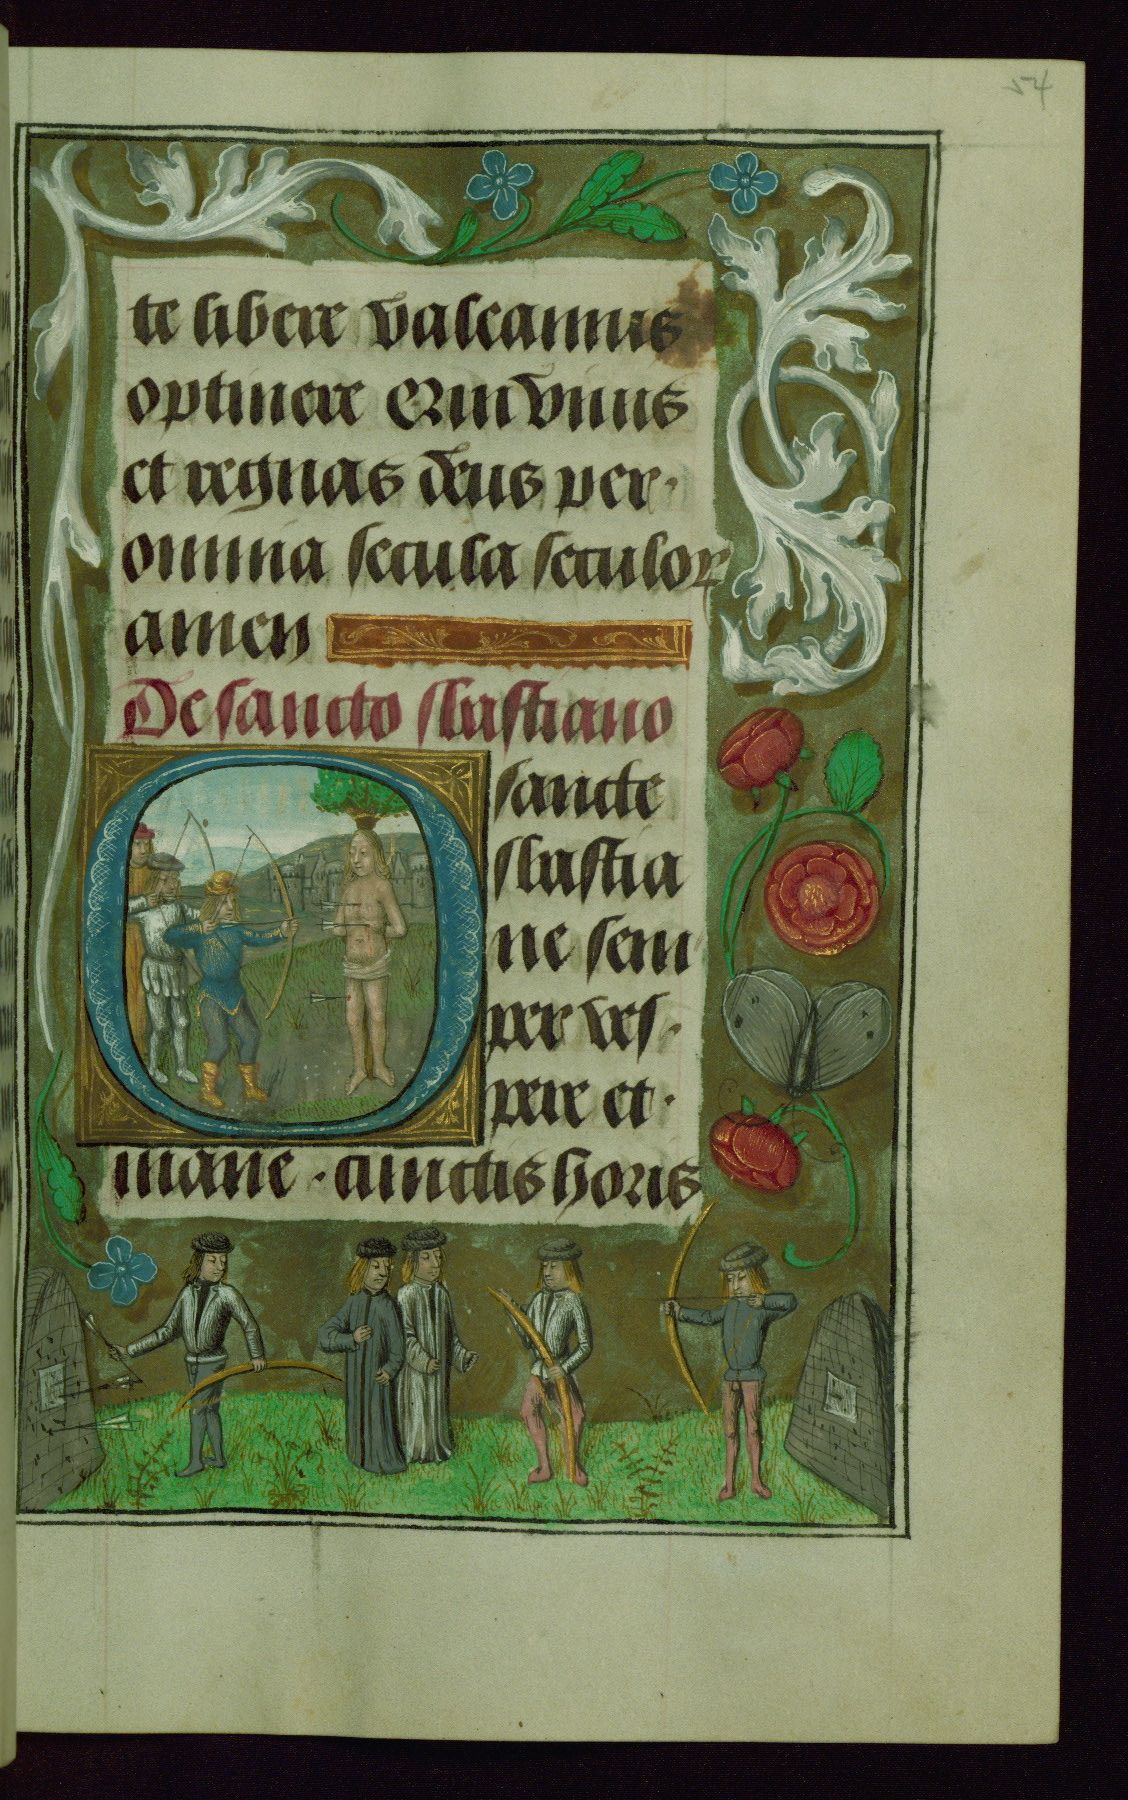 54
te libere valeamus
optinere Qui vivis
et regnas deus per
omnia secula seculor
amen
De sancto sebastiano
O sancte
sebastia
ne sem
per ves
pere et
mane · cunctis horis